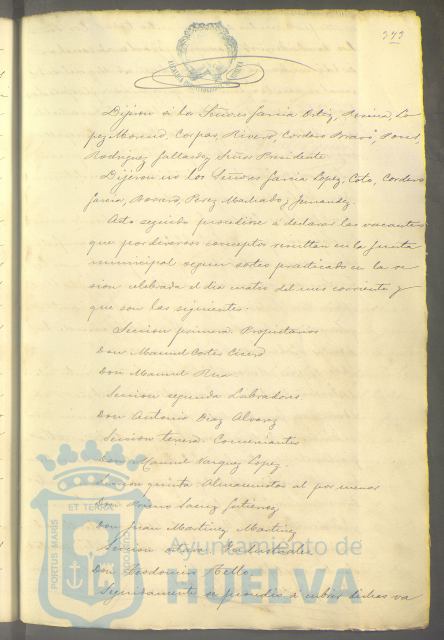 373
Dijeron si los Señores García Ortiz, Lo
pez Moreno, Corpas, Rivero, Cordero Bravo, Ponce,
Rodriguez Gallardo y Señor Presidente
Dijeron no los Señores García Lopez, Coto, Cordero
García, Perez Machado y Fernandez.
Acto seguido procediose á declarar las vacantes
que por diversos conceptos resultan en la Junta
municipal segun sorteo practicado en la se
sion celebrada el dia cuatro del mes corriente y
que son las siguientes.
Seccion primera. Propietarios
Don Manuel Cortes
Don Manuel Rua
Seccion segunda Labradores.
Don Antonio Diaz Alvarez
Seccion tercera. Comerciantes
Don Manuel Vazquez Lopez.
Seccion quinta Almacenistas al por menor
Don Saenz Gutierrez
Don Juan Martinez Martinez
Seccion Industriales
Don Teodomiro Tello
Seguidamente se procedió á cubrir dichas va
PORTUS MARIS
ET TERRAE
CUSTODIA
Ayuntamiento de
HUELVA